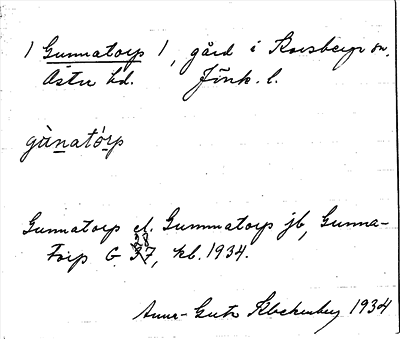 1 Gunnatorp 1, gård i Korsberga sn.
Östra hd. Jönk. l.
gùnató̱rp
Gunnatorp el. Gummatorp jb, Gunna-
torp G, kbl. 1934.
Anna-Greta 1934